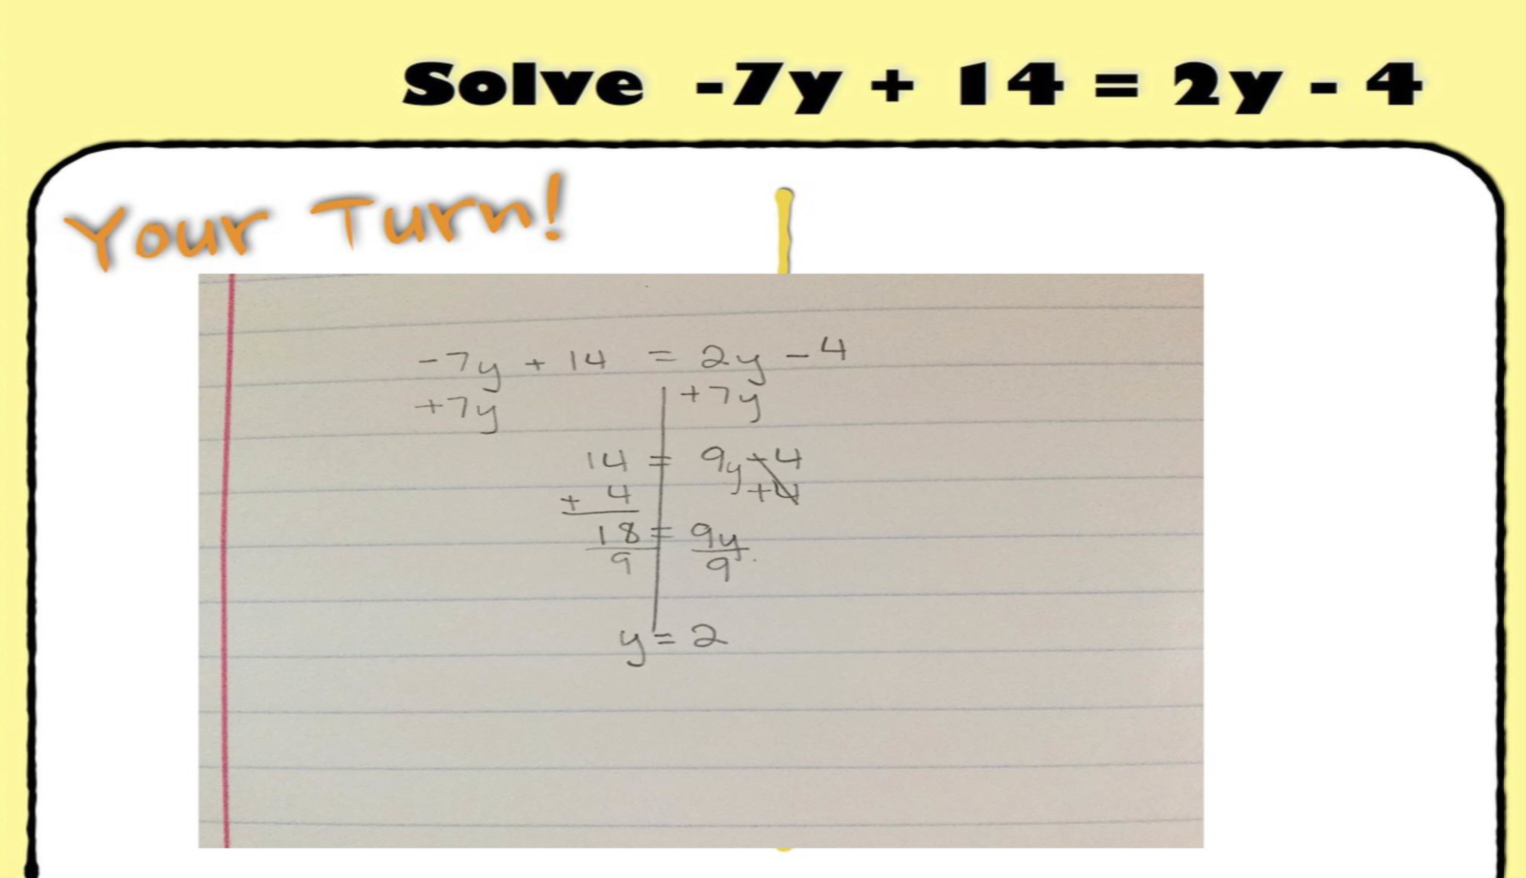 Solve -7y + 14 = 2y - 4
Your Turn!
-7y + 14 = 2y - 4
+7y +7y
14 = 9y - 4
+ 4 +4
18 = 9y
9 9
y = 2